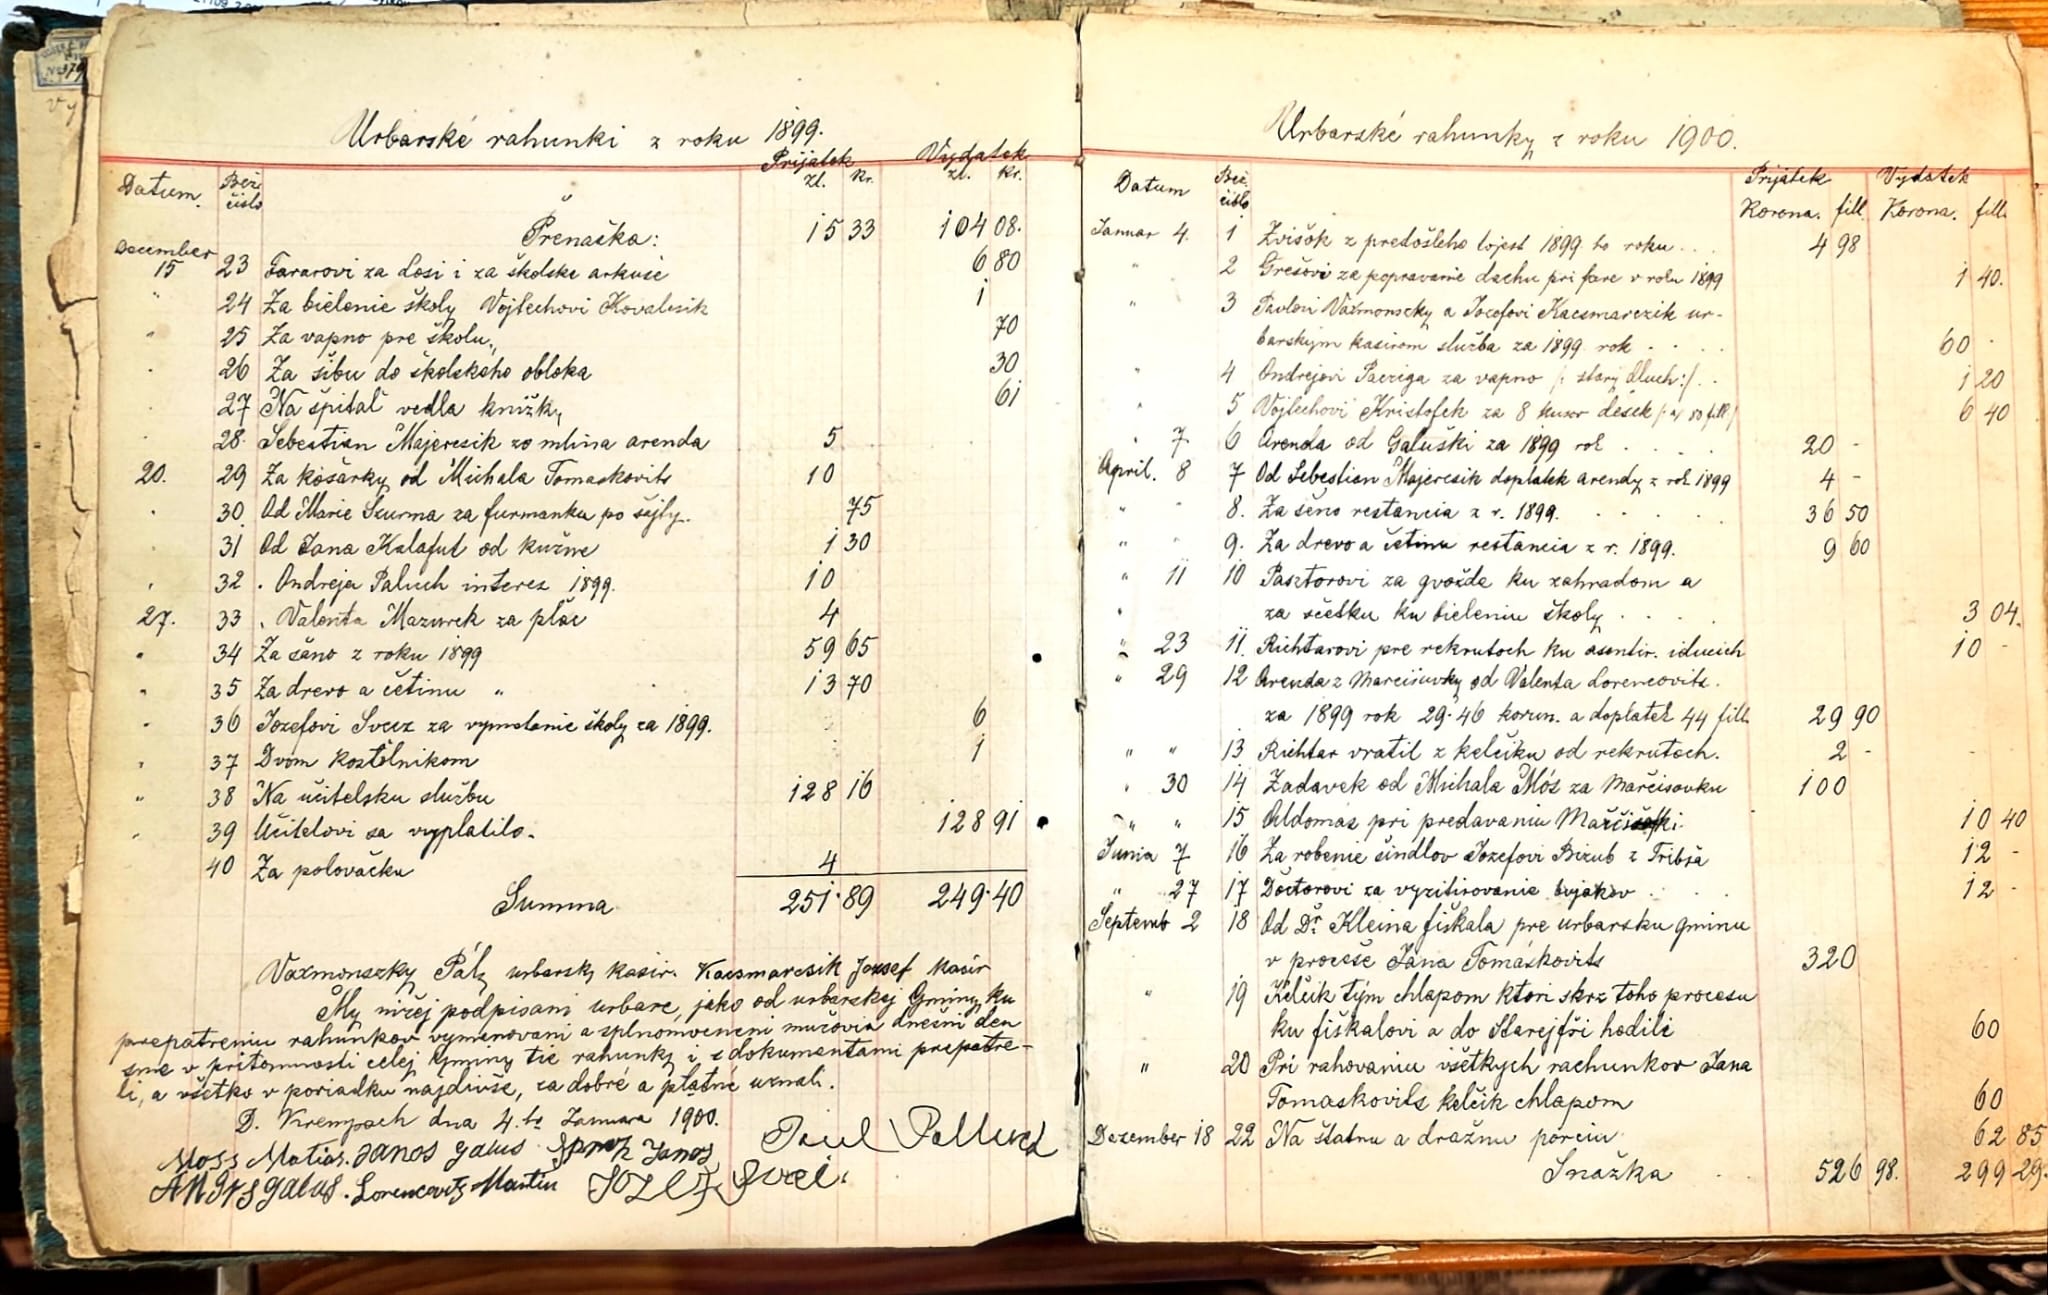 Urbarské rahunki z roku 1899.
Datum. Bež. čislo Prijatek zl. kr. Vydatek zl. kr.
Prenaška: 15 33 104 08.
December 15 23 Fararovi za losi i za školske arkuše 6 80
" 24 Za bielenie školy Vojtechovi Kovalcsik 1
" 25 Za vapno pre školu 70
26 Za šibu do školskeho obloka 30
27 Na špital vedla knižky 61
28. Sebestian Majercsik zo mlina arenda 5
20. 29 Za košarky od Michala Tomaskovits 10
30 Od Marie Szurma za furmanku po šejty. 75
31 Od Jana Kalafut od kužne 1 30
32 . Ondreja Paluch interes 1899. 10
27. 33 . Valenta Mazurek za plac 4
" 34 Za sano z roku 1899 59 65
" 35 Za drevo a četinu " 13 70
" 36 Jozefovi Svecz za vymetanie školy za 1899. 6
" 37 Dvom kostelnikom 1
" 38 Na učitelsku službu 128 16
" 39 Učitelovi sa vyplatilo. 128 91
40 Za polovačku 4
Summa 251·89 249·40
Vaxmonszky Pál, urbarsky kasir. Kacsmarcsik Jozsef kasír
My nižej podpisani urbare, jako od urbarskej Gminy ku
prepatreniu rahunkov vymenovani a splnomocneni mužovia dnešni den
sme v pritomnosti celej Gminy tie rahunky i z dokumentami prepatre-
li, a všetko v poriadku najdivše, za dobré a platné uznali.
D. Krempach dna 4. ho Januara 1900.
Moss Matias. Janos Galus Janos Paul Palluch
Galus. Lorencovits Martin Jozef Svec.
Urbarské rahunky z roku 1900.
Datum Bež. čislo Prijatek Korona. fill. Vydatek Korona. fill.
Januar 4. 1 Zvišok z predošleho tojest 1899 ho roku . . . 4 98
" 2 Grešovi za popravanie dachu pri fare v roku 1899 1 40.
" 3 Pavlovi Vaxmonszky a Jozefovi Kacsmarczik ur-
barskym kasirom služba za 1899 rok . . . . 60 .
" 4 Ondrejovi Pacziga za vapno /: stary dluch :/ . . 1 20
" 5 Vojtechovi Kristofek za 8 kusov desek /: a 80 fill :/ 6 40
" 7. 6 Arenda od Galuški za 1899 rok . . . . 20 -
April. 8 7 Od Sebestian Majercsik doplatek arendy z rok 1899 4 -
" " 8. Za seno restancia z r. 1899. . . . . 36 50
" " 9. Za drevo a četinu restancia z r. 1899. 9 60
" 11 10 Pasztorovi za gvozde ku zahradom a
" za sčetku ku bieleniu školy . . . . 3 04.
" 23 11. Richtarovi pre rekrutoch ku asentir. iducich 10 -
" 29 12 Arenda z Marcisuvky od Valenta Lorencovits.
za 1899 rok 29·46 korun. a doplatek 44 fill. 29 90
" " 13 Richtar vratil z kelčiku od rekrutoch. 2 -
" 30 14 Zadavek od Michala Móś za Marčisovku 100
" " 15 Aldomas pri predavaniu 10 40
Junia 7 16 Za robenie šindlov Jozefovi Bizub z Tribša 12 -
" 27 17 Doctorovi za vyzitirovanie bujakov . . 12 -
Septemb 2 18 Od Dr. Kleina fiškala pre urbarsku gminu
v procese Jána Tomáskovits 320
" 19 Kelčik tým chlapom ktori skrz toho procesu
ku fiškalovi a do Starejfši hodili 60
" 20 Pri rahovaniu všetkych rachunkov Jana
Tomaskovits kelčik chlapom 60
Dezember 18 22 Na štatnu a dražnu porciu 62 85
Snažka . . 526 98. 299 29.